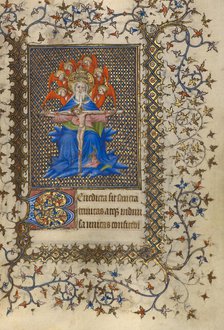 Benedicta sit sancta
trinitas atq3 indiui
sa unitas confitebi